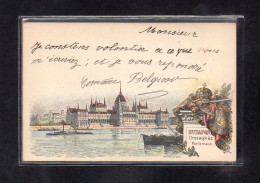 Monsieur
Je consens volontier a ce que vous
m'écriviez; et je vous repondré
Belgique
BUDAPEST
Országház
Parlament